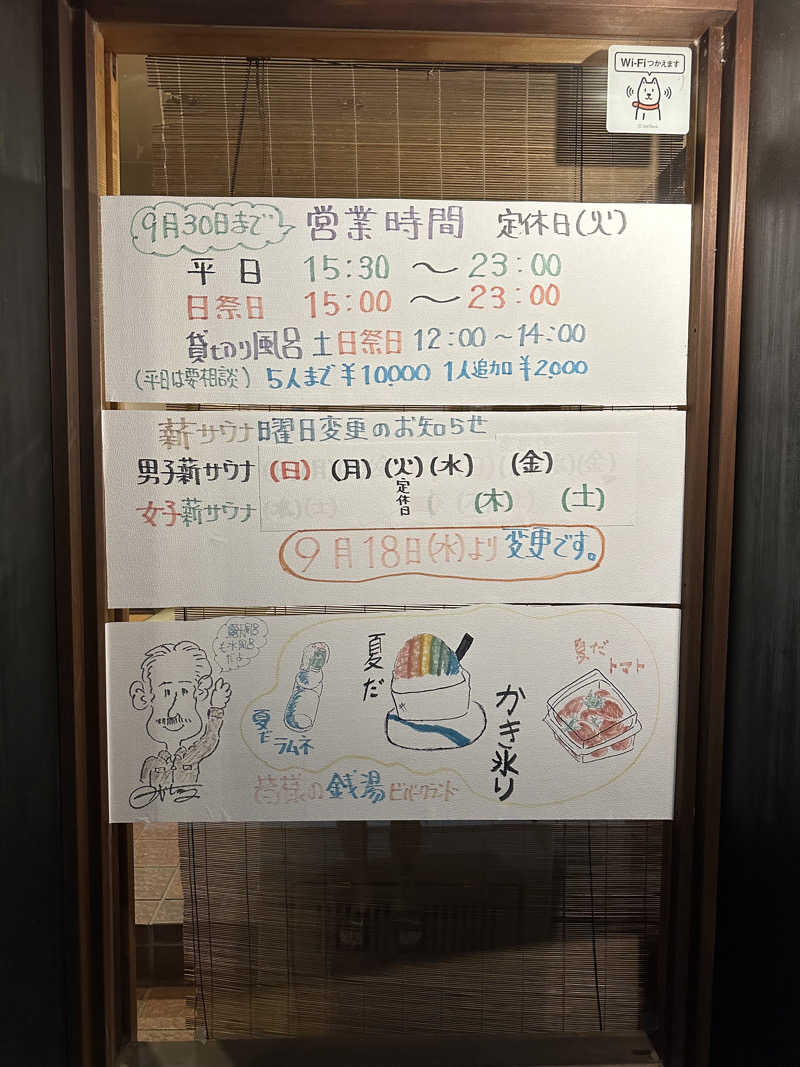 Wi-Fiつかえます
9月30日まで 営業時間 定休日(火)
平日 15:30 〜 23:00
日祭日 15:00 〜 23:00
貸切り風呂 土日祭日 12:00〜14:00
(平日は要相談) 5人まで¥10000 1人追加¥2000
薪サウナ曜日変更のお知らせ
男子薪サウナ (日) (月) (火) (水) (金)
定休日
女子薪サウナ (木) (土)
9月18日(水)より変更です。
夏だ
ラムネ
夏だ
かき氷り
夏だ
トマト
の銭湯